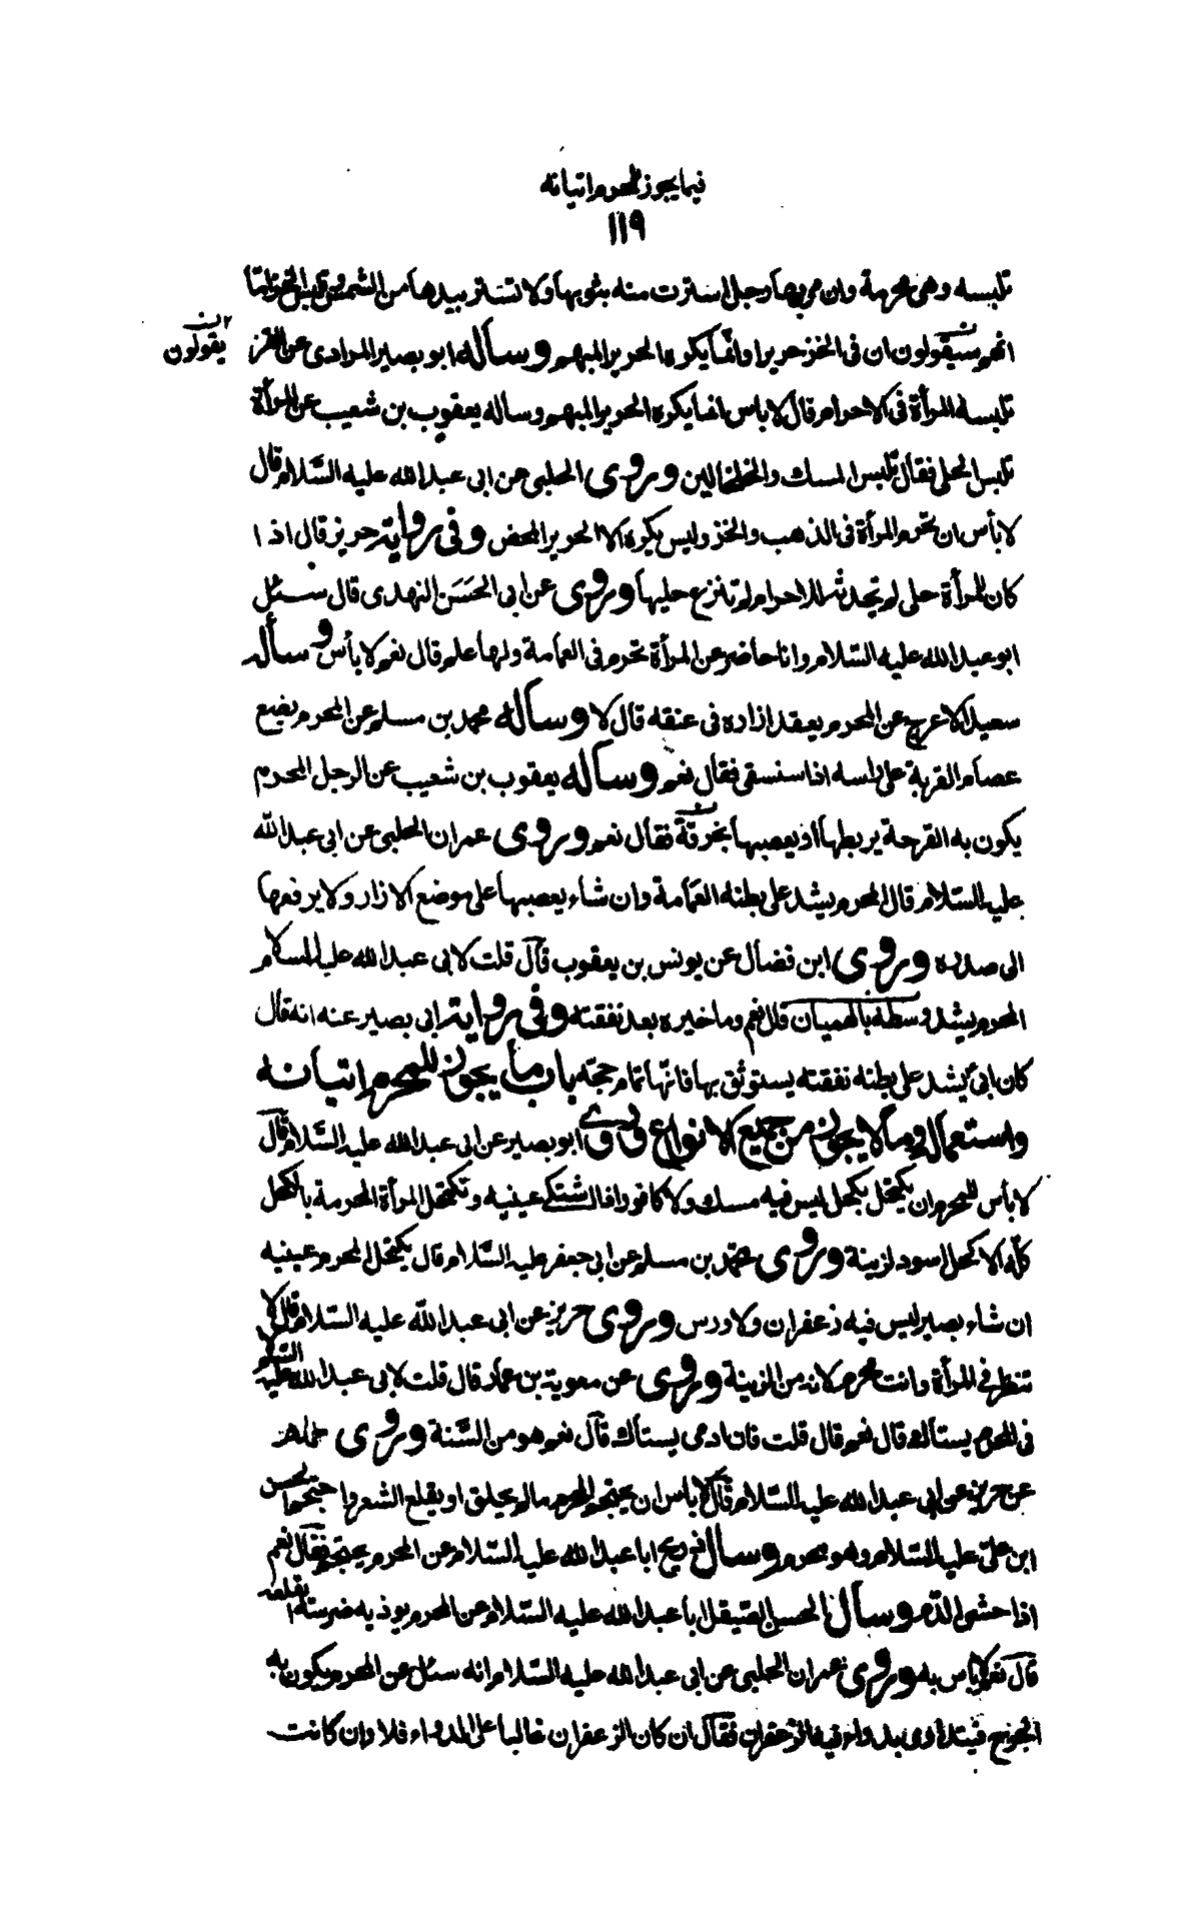 فيما يجوز للمحرم اتيانه
١١٩
تلبسه وهى محرمة وان مر بها رجل استترت منه بثوبها ولا تستتر بيدها من الشمس وتلبس الخز اما
انهم سيقولون ان فى الخز حريرا وانما يكره الحرير المبهم وسأله ابو بصير المرادى عن القز
يقولون
تلبسه المرأة فى الاحرام قال لا باس انما يكره الحرير المبهم وساله يعقوب بن شعيب عن المرأة
تلبس الحلى فقال تلبس المسك والخلخالين وروى الحلبى عن ابى عبد الله عليه السّلام قال
لا بأس ان تحرم المرأة فى الذهب والخز وليس يكره الا الحرير المحض وفى رواية حريز قال اذا
كان للمرأة حلى لم تحدثه للاحرام لم تنزع حليها وروى عن ابى الحَسَن النهدى قال سئل
ابو عبد الله عليه السّلام وانا حاضر عن المرأة تحرم فى العمامة ولها علم قال نعم لا بأس وسأله
سعيد الاعرج عن المحرم يعقد ازاره فى عنقه قال لا وساله محمد بن مسلم عن المحرم يضع
عصام القربة على راسه اذا استسقى فقال نعم وساله يعقوب بن شعيب عن الرجل المحرم
يكون به القرحة يربطها او يعصبها بخرقة فقال نعم وروى عمران الحلبى عن ابى عبد الله
عليه السّلام قال المحرم يشد على بطنه العمامة وان شاء يعصبها على موضع الازار ولا يرفعها
الى صدره وروى ابن فضال عن يونس بن يعقوب قال قلت لابى عبد الله عليه السلام
المحرم يشد وسطه بالهميان قال نعم وما خيره بعد نفقته وفى رواية ابى بصير عنه انه قال
كان ابى يشد على بطنه نفقته يستوثق بها فانّها تمام حجّه باب ما يجوز للمحرم اتيانه
واستعماله وما لا يجوز من جميع الانواع روى ابو بصير عن ابى عبد الله عليه السّلام قال
لا بأس للمحرم ان يكتحل بكحل ليس فيه مسك ولا كافور اذا اشتكى عينيه وتكتحل المرأة المحرمة بالكحل
كلّه الا كحل اسود لزينة وروى محمّد بن مسلم عن ابى جعفر عليه السّلام قال يكتحل المحرم عينيه
ان شاء بصبر ليس فيه زعفران ولا ورس وروى حريز عن ابى عبد الله عليه السّلام قال لا
تنظر فى المرأة وانت محرم لانه من الزينة وروى عن معوية بن عمار قال قلت لابى عبد الله عليه السّلام
فى المحرم يستاك قال نعم قال قلت فان ادمى يستاك قال نعم هو من السّنة وروى حماد
عن حريز عن ابى عبد الله عليه السّلام قال لا باس ان يحتجم المحرم ما لم يحلق او يقلع الشعر واحتجم الحسن
ابن على عليه السّلام وهو محرم وسال ذريح ابا عبد الله عليه السّلام عن المحرم يحتجم فقال نعم
اذا خشى الدّم وسأل الحسن الصيقل ابا عبد الله عليه السّلام عن المحرم يوذيه ضرسه ايقلعه
قال نعم لا باس به وروى عمران الحلبى عن ابى عبد الله عليه السّلام انه سئل عن المحرم يكون به
الجرح فيتداوى بدواء فيه الزعفران فقال ان كان الزعفران غالبا على الدواء فلا وان كانت